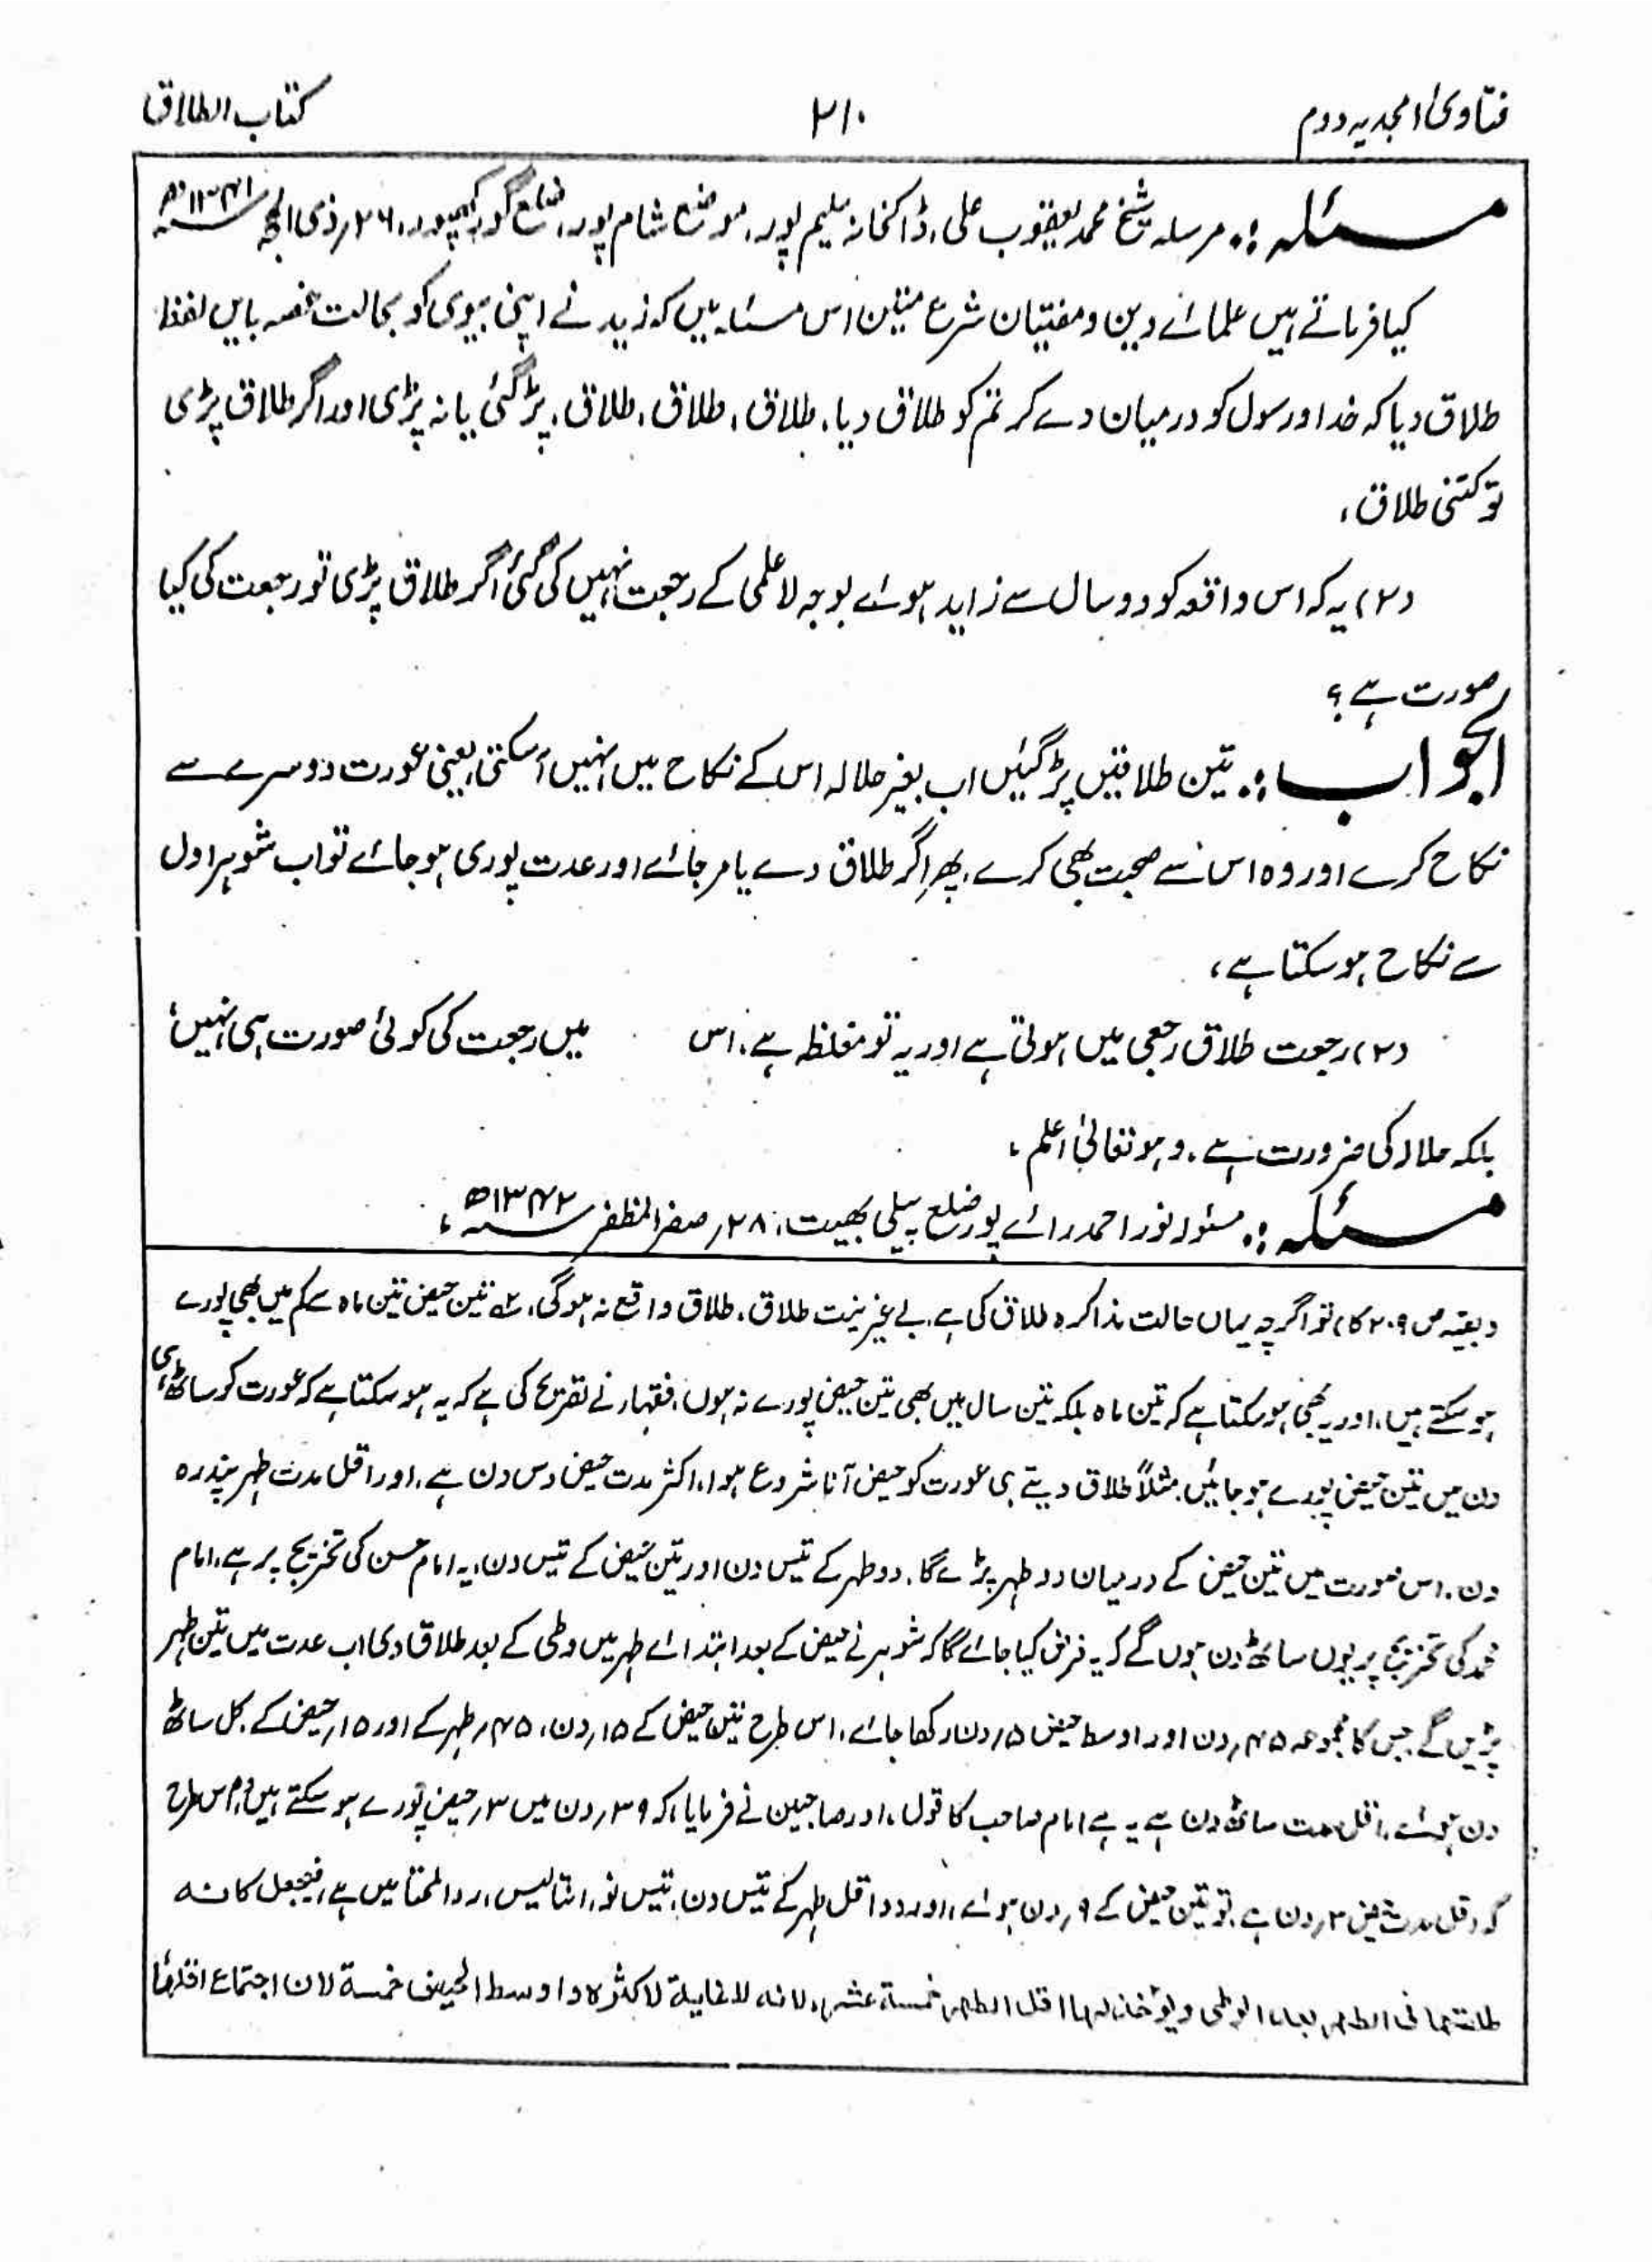 فتاویٰ امجدیہ دوم ۲۱۰ کتاب الطلاق
مسئلہ :۔ مرسلہ شیخ محمد یعقوب علی، ڈاکخانہ سلیم پور، موضع شام پور، ضلع گورکھپور، ۲۶؍ ذی الحجہ ۱۳۴۱ھ
کیا فرماتے ہیں علمائے دین و مفتیان شرع متین اس مسئلہ میں کہ زید نے اپنی بیوی کو بحالت غصہ بایں لفظ
طلاق دیا کہ خدا و رسول کو درمیان دے کر تم کو طلاق دیا، طلاق، طلاق، طلاق، پڑ گئی یا نہ پڑی اور اگر طلاق پڑی
تو کتنی طلاق،
(۲) یہ کہ اس واقعہ کو دو سال سے زاید ہوئے بوجہ لاعلمی کے رجعت نہیں کی گئی اگر طلاق پڑی تو رجعت کی کیا
صورت ہے؟
الجواب :۔ تین طلاقیں پڑ گئیں اب بغیر حلالہ اس کے نکاح میں نہیں آسکتی، یعنی عورت دوسرے سے
نکاح کرے اور وہ اس سے صحبت بھی کرے، پھر اگر طلاق دے یا مر جائے اور عدت پوری ہو جائے تو اب شوہر اول
سے نکاح ہو سکتا ہے،
(۲) رجعت طلاق رجعی میں ہوتی ہے اور یہ تو مغلظہ ہے، اس میں رجعت کی کوئی صورت ہی نہیں،
بلکہ حلالہ کی ضرورت ہے، وہو تعالیٰ اعلم،
مسئلہ :۔ مسئولہ نور احمد رائے پور ضلع پیلی بھیت، ۲۸؍ صفر المظفر ۱۳۴۲ھ،
(بقیہ ص ۲۰۹ کا) تو اگرچہ یہاں حالت مذاکرہ طلاق کی ہے، بے غیر نیت طلاق، طلاق واقع نہ ہوگی، تین حیض تین ماہ سے کم میں بھی پورے
ہو سکتے ہیں، اور یہ بھی ہو سکتا ہے کہ تین ماہ بلکہ تین سال میں بھی تین حیض پورے نہ ہوں، فقہاء نے تصریح کی ہے کہ یہ ہو سکتا ہے کہ عورت کو ساٹھ ہی
دن میں تین حیض پورے ہو جائیں، مثلاً طلاق دیتے ہی عورت کو حیض آنا شروع ہوا، اکثر مدت حیض دس دن ہے، اور اقل مدت طہر پندرہ
دن، اس صورت میں تین حیض کے درمیان دو طہر پڑے گا، دو طہر کے تیس دن اور تین حیض کے تیس دن، یہ امام حسن کی تخریج پر ہے، امام
محمد کی تخریج پر یوں ساٹھ دن ہوں گے کہ یہ فرض کیا جائے گا کہ شوہر نے حیض کے بعد ابتدائے طہر میں وطی کے بعد طلاق دی اب عدت میں تین طہر
پڑیں گے جس کا مجموعہ ۴۵؍ دن اور اوسط حیض ۵؍ دن رکھا جائے، اس طرح تین حیض کے ۱۵؍ دن، ۴۵؍ طہر کے اور ۱۵؍ حیض کے، کل ساٹھ
دن ہوئے، اقل مدت ساٹھ دن ہے یہ ہے امام صاحب کا قول، اور صاحبین نے فرمایا، کہ ۳۹؍ دن میں ۳؍ حیض پورے ہو سکتے ہیں، اس طرح
کہ اقل مدت حیض ۳؍ دن ہے، تو تین حیض کے ۹؍ دن ہوئے، اور دو اقل طہر کے تیس دن، تیس نو، انتالیس، رد المحتار میں ہے، فیجعل کانہ
طلقها فی الطهر بعد الوطی ویؤخذ لها اقل الطهر خمسة عشر، لانه لا غایة لاکثره واوسط الحیض خمسة لان اجتماع اقلهما